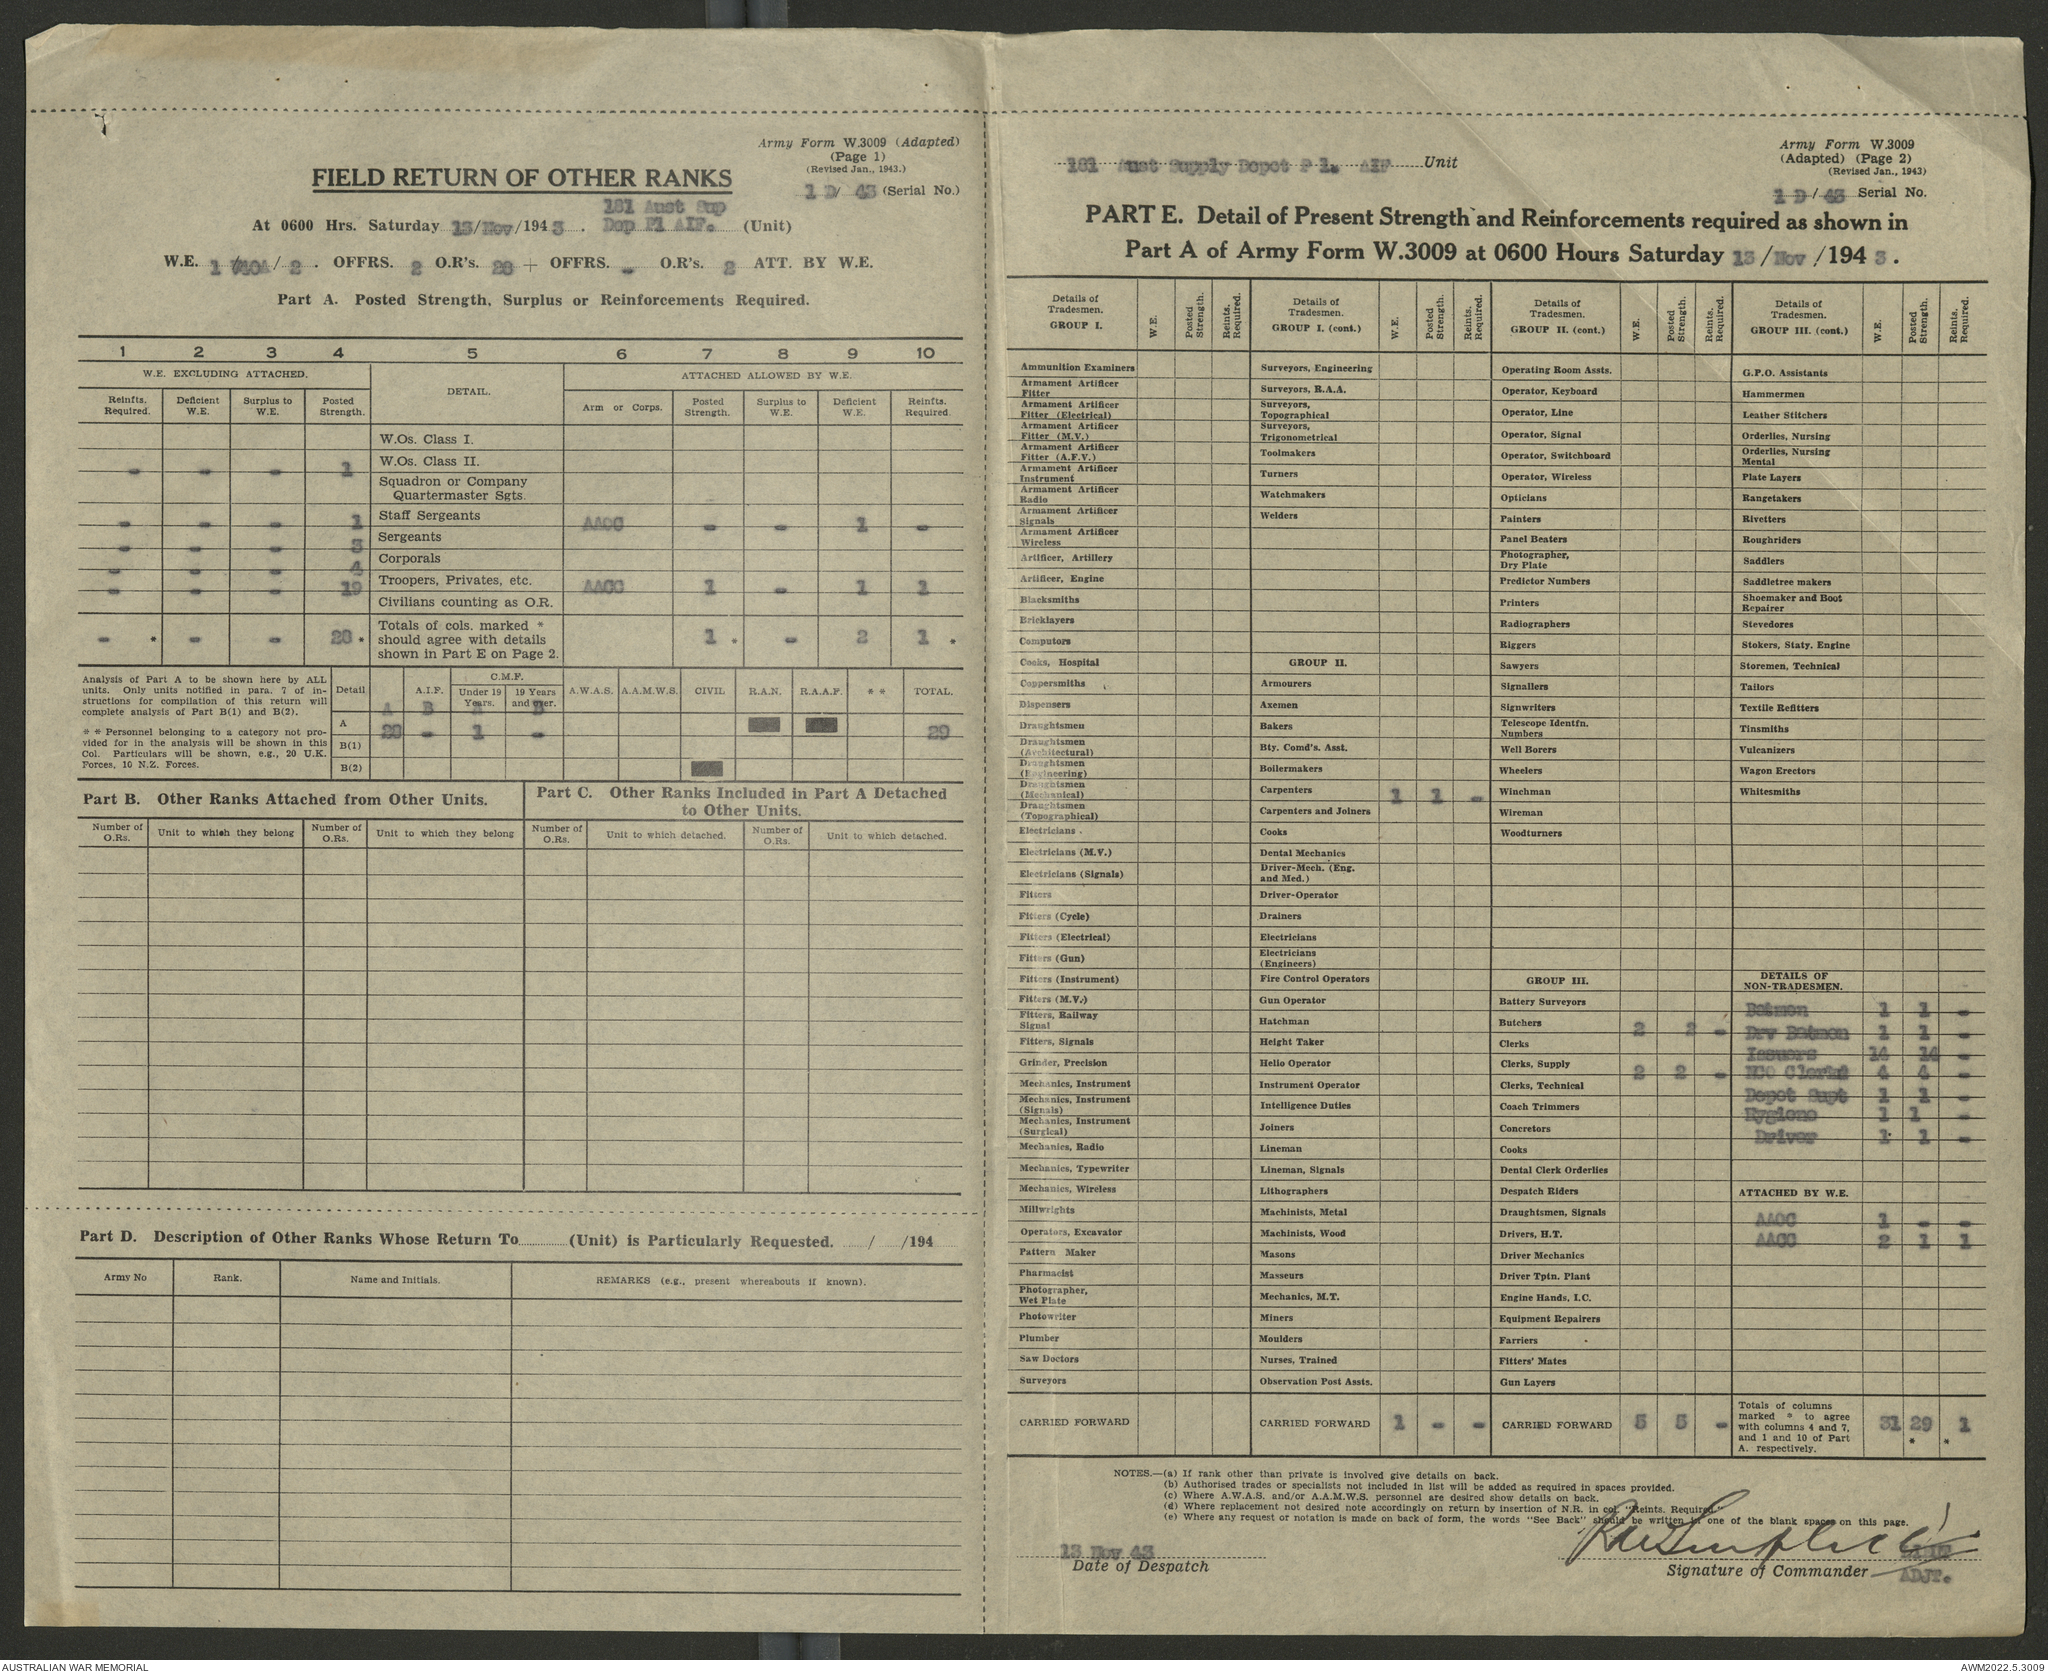 Army Form W.3009 (Adapted)
(Page 1)
(Revised Jan., 1943.)
1 D/ 43 (Serial No.)
FIELD RETURN OF OTHER RANKS
181 Aust Sup
At 0600 Hrs. Saturday 13/Nov/1943. Dep Pl AIF. (Unit)
W.E. 1 /2. OFFRS. 2 O.R's. 28 + OFFRS. - O.R's. 2 ATT. BY W.E.
Part A. Posted Strength, Surplus or Reinforcements Required.
1 2 3 4 5 6 7 8 9 10
W.E. EXCLUDING ATTACHED. DETAIL. ATTACHED ALLOWED BY W.E.
Reinfts. Required. Deficient W.E. Surplus to W.E. Posted Strength. Arm or Corps. Posted Strength. Surplus to W.E. Deficient W.E. Reinfts. Required.
W.Os. Class I.
- - - 1 W.Os. Class II.
Squadron or Company
Quartermaster Sgts.
- - - 1 Staff Sergeants AAOC - - 1 -
- - - 3 Sergeants
- - - 4 Corporals
- - - 19 Troopers, Privates, etc. AACC 1 - 1 1
Civilians counting as O.R.
- * - - 28 * Totals of cols. marked * should agree with details shown in Part E on Page 2. 1 * - 2 1 *
Analysis of Part A to be shown here by ALL
units. Only units notified in para. 7 of in-
structions for compilation of this return will
complete analysis of Part B(1) and B(2).
* * Personnel belonging to a category not pro-
vided for in the analysis will be shown in this
Col. Particulars will be shown, e.g., 20 U.K.
Forces, 10 N.Z. Forces.
Detail A.I.F. C.M.F. Under 19 Years. 19 Years and over. A.W.A.S. A.A.M.W.S. CIVIL R.A.N. R.A.A.F. * * TOTAL.
A B A B
A 28 - 1 - 29
B(1)
B(2)
Part B. Other Ranks Attached from Other Units.
Part C. Other Ranks Included in Part A Detached
to Other Units.
Number of O.Rs. Unit to which they belong Number of O.Rs. Unit to which they belong Number of O.Rs. Unit to which detached. Number of O.Rs. Unit to which detached.
Part D. Description of Other Ranks Whose Return To (Unit) is Particularly Requested. / /194
Army No Rank. Name and Initials. REMARKS (e.g., present whereabouts if known).
181 Aust Supply Depot Pl. AIF Unit
Army Form W.3009
(Adapted) (Page 2)
(Revised Jan., 1943)
1 D/ 43 Serial No.
PART E. Detail of Present Strength and Reinforcements required as shown in
Part A of Army Form W.3009 at 0600 Hours Saturday 13/Nov/1943.
Details of Tradesmen. GROUP I. W.E. Posted Strength. Reints. Required.
Ammunition Examiners
Armament Artificer Fitter
Armament Artificer Fitter (Electrical)
Armament Artificer Fitter (M.V.)
Armament Artificer Fitter (A.F.V.)
Armament Artificer Instrument
Armament Artificer Radio
Armament Artificer Signals
Armament Artificer Wireless
Artificer, Artillery
Artificer, Engine
Blacksmiths
Bricklayers
Computors
Cooks, Hospital
Coppersmiths
Dispensers
Draughtsmen
Draughtsmen (Architectural)
Draughtsmen (Engineering)
Draughtsmen (Mechanical)
Draughtsmen (Topographical)
Electricians
Electricians (M.V.)
Electricians (Signals)
Fitters
Fitters (Cycle)
Fitters (Electrical)
Fitters (Gun)
Fitters (Instrument)
Fitters (M.V.)
Fitters, Railway Signal
Fitters, Signals
Grinder, Precision
Mechanics, Instrument
Mechanics, Instrument (Signals)
Mechanics, Instrument (Surgical)
Mechanics, Radio
Mechanics, Typewriter
Mechanics, Wireless
Millwrights
Operators, Excavator
Pattern Maker
Pharmacist
Photographer, Wet Plate
Photowriter
Plumber
Saw Doctors
Surveyors
CARRIED FORWARD
Details of Tradesmen. GROUP I. (cont.) W.E. Posted Strength. Reints. Required.
Surveyors, Engineering
Surveyors, R.A.A.
Surveyors, Topographical
Surveyors, Trigonometrical
Toolmakers
Turners
Watchmakers
Welders
GROUP II.
Armourers
Axemen
Bakers
Bty. Comd's. Asst.
Boilermakers
Carpenters 1 1 -
Carpenters and Joiners
Cooks
Dental Mechanics
Driver-Mech. (Eng. and Med.)
Driver-Operator
Drainers
Electricians
Electricians (Engineers)
Fire Control Operators
Gun Operator
Hatchman
Height Taker
Helio Operator
Instrument Operator
Intelligence Duties
Joiners
Lineman
Lineman, Signals
Lithographers
Machinists, Metal
Machinists, Wood
Masons
Masseurs
Mechanics, M.T.
Miners
Moulders
Nurses, Trained
Observation Post Assts.
CARRIED FORWARD 1 - -
Details of Tradesmen. GROUP II. (cont.) W.E. Posted Strength. Reints. Required.
Operating Room Assts.
Operator, Keyboard
Operator, Line
Operator, Signal
Operator, Switchboard
Operator, Wireless
Opticians
Painters
Panel Beaters
Photographer, Dry Plate
Predictor Numbers
Printers
Radiographers
Riggers
Sawyers
Signallers
Signwriters
Telescope Identfn. Numbers
Well Borers
Wheelers
Winchman
Wireman
Woodturners
GROUP III.
Battery Surveyors
Butchers 2 2 -
Clerks
Clerks, Supply 2 2 -
Clerks, Technical
Coach Trimmers
Concretors
Cooks
Dental Clerk Orderlies
Despatch Riders
Draughtsmen, Signals
Drivers, H.T.
Driver Mechanics
Driver Tptn. Plant
Engine Hands, I.C.
Equipment Repairers
Farriers
Fitters' Mates
Gun Layers
CARRIED FORWARD 5 5 -
Details of Tradesmen. GROUP III. (cont.) W.E. Posted Strength. Reints. Required.
G.P.O. Assistants
Hammermen
Leather Stitchers
Orderlies, Nursing
Orderlies, Nursing Mental
Plate Layers
Rangetakers
Rivetters
Roughriders
Saddlers
Saddletree makers
Shoemaker and Boot Repairer
Stevedores
Stokers, Staty. Engine
Storemen, Technical
Tailors
Textile Refitters
Tinsmiths
Vulcanizers
Wagon Erectors
Whitesmiths
DETAILS OF NON-TRADESMEN.
Batmen 1 1 -
Drv Batmen 1 1 -
Issuers 14 14 -
NCO Clerks 4 4 -
Depot Supt 1 1 -
Hygiene 1 1 -
Driver 1 1 -
ATTACHED BY W.E.
AAOC 1 - -
AACC 2 1 1
Totals of columns marked * to agree with columns 4 and 7, and 1 and 10 of Part A. respectively. 31 29 * 1 *
NOTES.—(a) If rank other than private is involved give details on back.
(b) Authorised trades or specialists not included in list will be added as required in spaces provided.
(c) Where A.W.A.S. and/or A.A.M.W.S. personnel are desired show details on back.
(d) Where replacement not desired note accordingly on return by insertion of N.R. in col. "Reints. Required."
(e) Where any request or notation is made on back of form, the words "See Back" should be written in one of the blank spaces on this page.
13 Nov 43
Date of Despatch
LIEUT
Signature of Commander ADJT.
AUSTRALIAN WAR MEMORIAL
AWM2022.5.3009